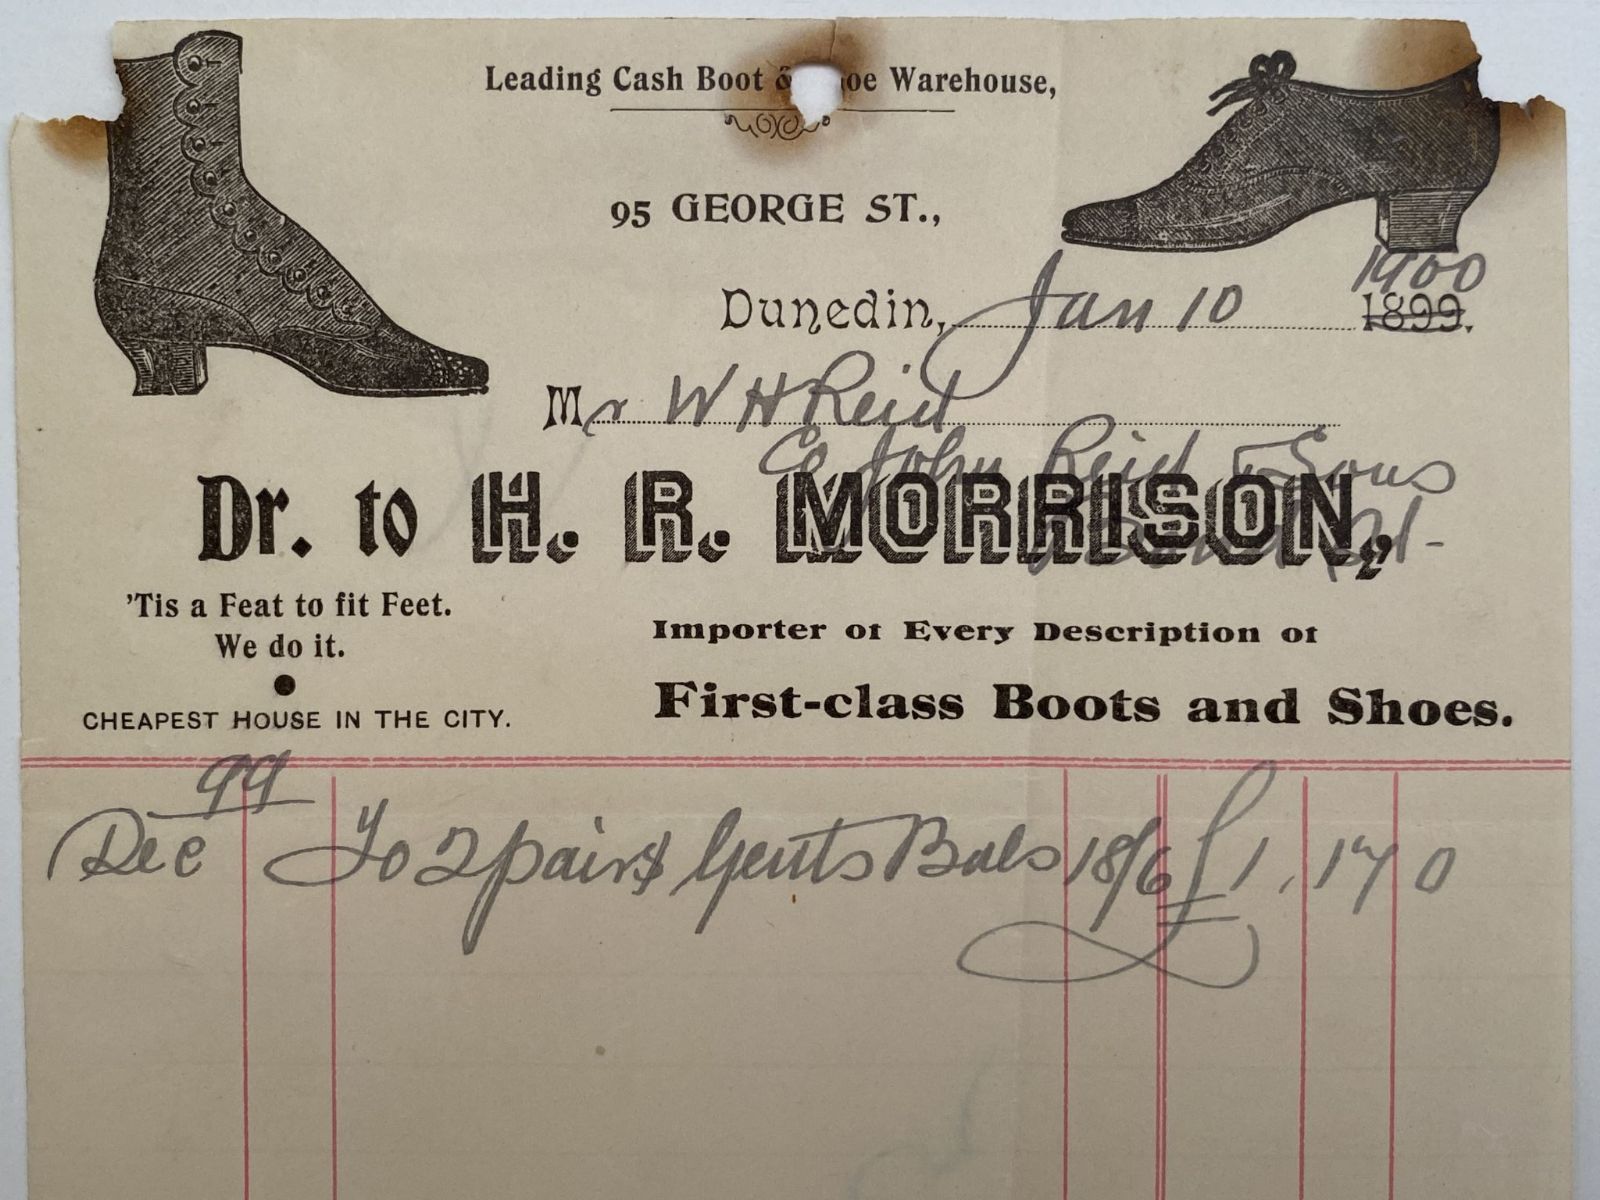 Leading Cash Boot & Shoe Warehouse,
95 GEORGE ST.,
Dunedin, Jan 10 1900 1899.
Mr W H Reid
Co John Reid & Sons
Dr. to H. R. MORRISON,
'Tis a Feat to fit Feet.
We do it.
CHEAPEST HOUSE IN THE CITY.
Importer of Every Description of
First-class Boots and Shoes.
99
Dec To 2 pairs Gents Bals 18/6 £1 . 17 0